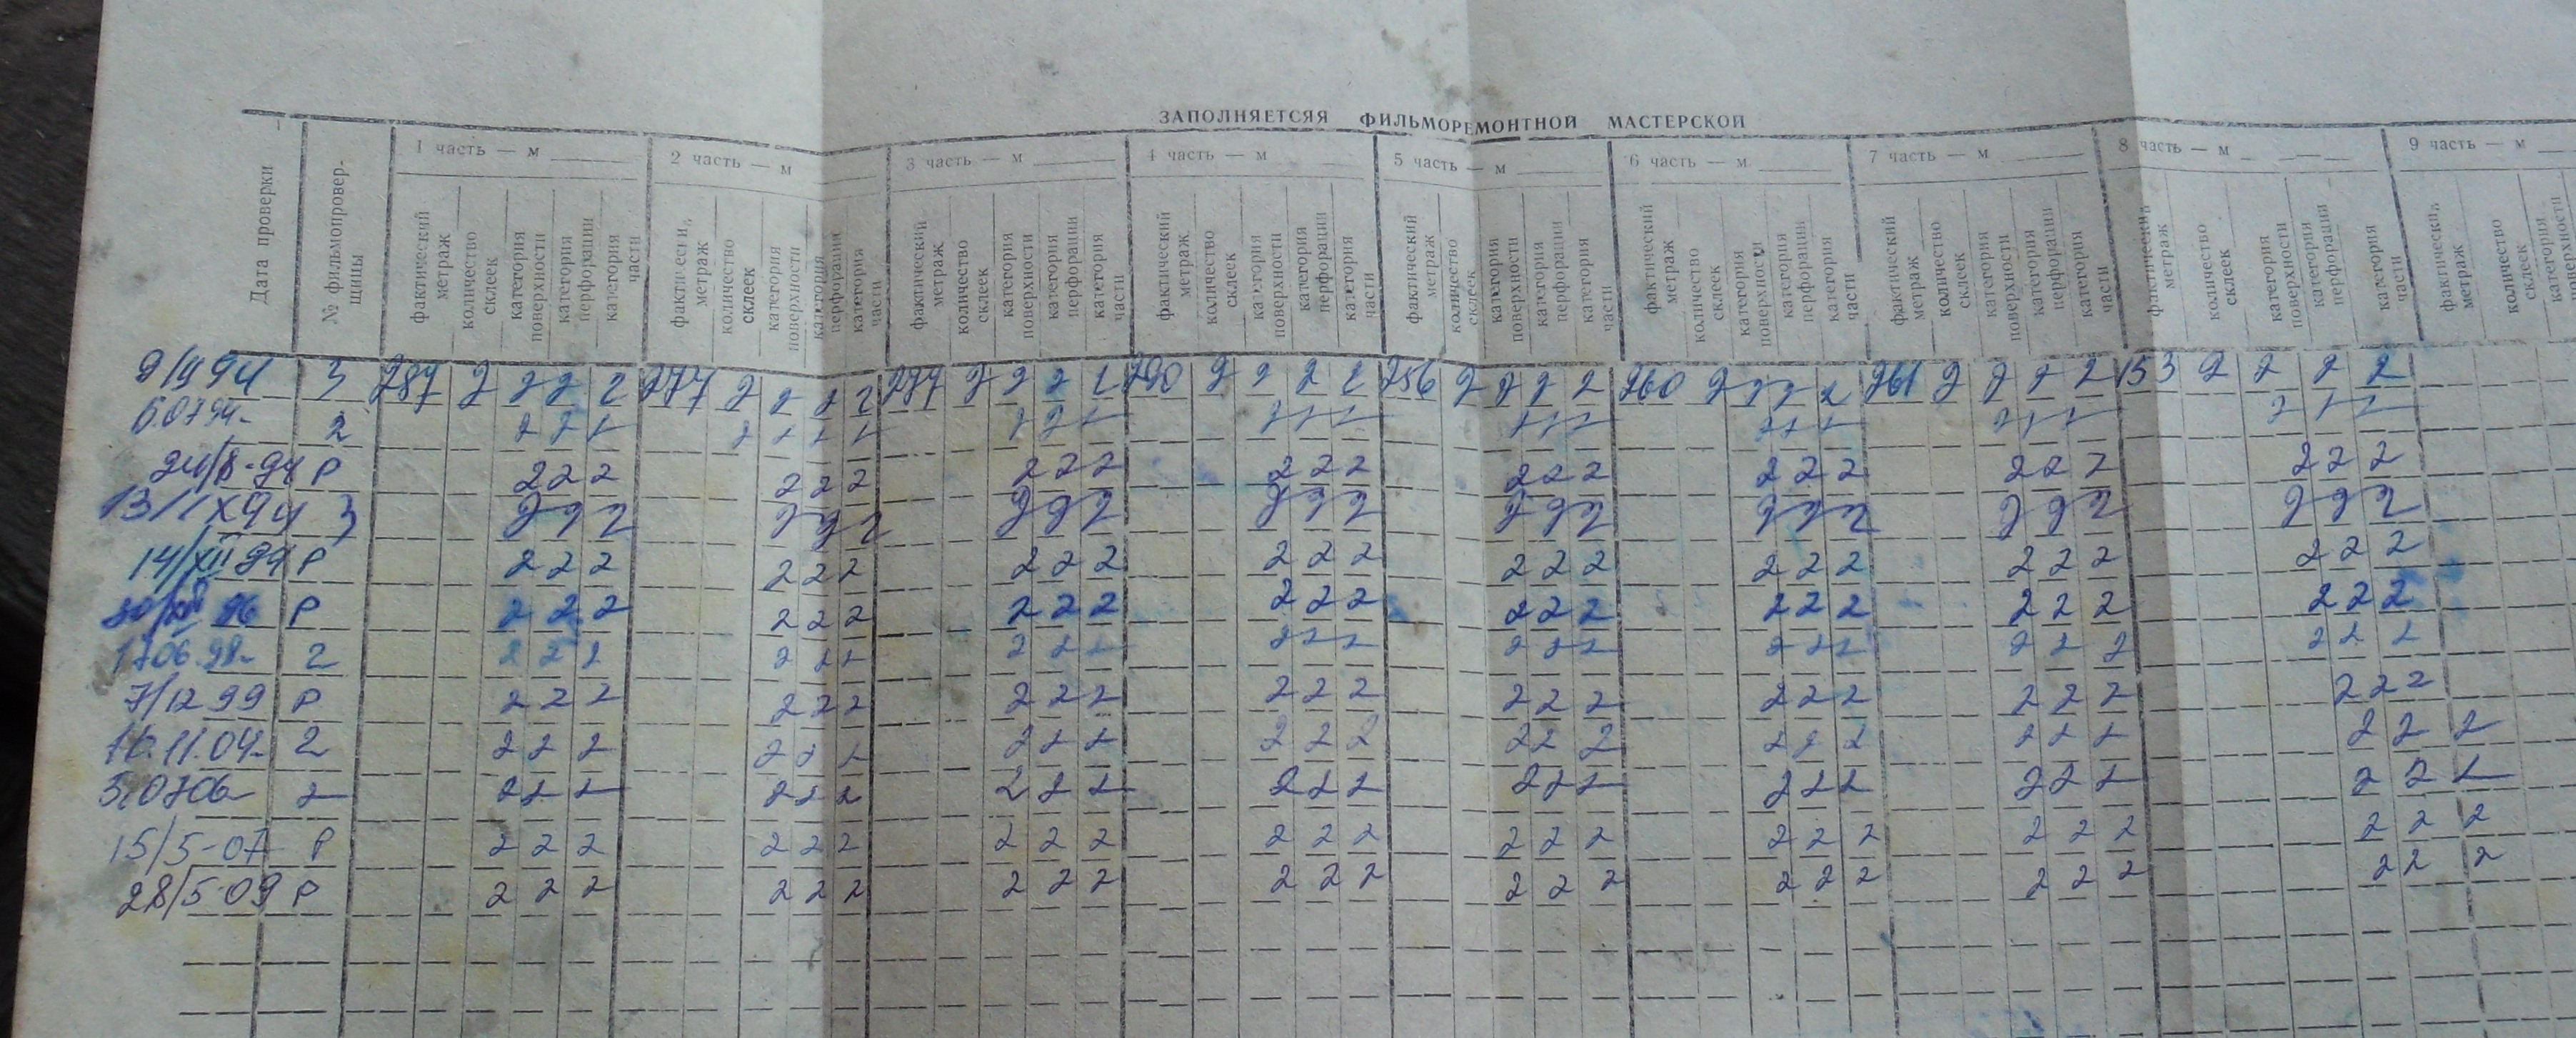 ЗАПОЛНЯЕТСЯ ФИЛЬМОРЕМОНТНОЙ МАСТЕРСКОЙ
Дата проверки № фильмопровер- щицы 1 часть — м 2 часть — м 3 часть — м 4 часть — м 5 часть — м 6 часть — м 7 часть — м 8 часть — м 9 часть — м
фактический метраж количество склеек категория поверхности категория перфорации категория части фактический метраж количество склеек категория поверхности категория перфорации категория части фактический метраж количество склеек категория поверхности категория перфорации категория части фактический метраж количество склеек категория поверхности категория перфорации категория части фактический метраж количество склеек категория поверхности категория перфорации категория части фактический метраж количество склеек категория поверхности категория перфорации категория части фактический метраж количество склеек категория поверхности категория перфорации категория части фактический метраж количество склеек категория поверхности категория перфорации категория части фактический метраж количество склеек категория поверхности
3 287 2 2 2 2 277 2 2 2 2 277 2 2 2 2 290 2 2 2 2 256 2 2 2 2 260 2 2 2 2 261 2 2 2 2 153 2 2 2 2
2
Р 2 2 2 2 2 2 2 2 2 2 2 2 2 2 2 2 2 2 2 2 2 2 2 2
3 2 2 2 2 2 2 2 2 2 2 2 2 2 2 2 2 2 2 2 2 2 2 2 2
14/XII 94 Р 2 2 2 2 2 2 2 2 2 2 2 2 2 2 2 2 2 2 2 2 2 2 2 2
Р 2 2 2 2 2 2 2 2 2 2 2 2 2 2 2 2 2 2 2 2 2 2 2 2
17.06.98 2 2 2 2 2 2 2 2 2 2 2 2 2 2 2 2 2 2 2 2 2 2 2 2 2
7/12 99 Р 2 2 2 2 2 2 2 2 2 2 2 2 2 2 2 2 2 2 2 2 2 2 2 2
16.11.04 2 2 2 2 2 2 2 2 2 2 2 2 2 2 2 2 2 2 2 2 2 2 2 2 2
5.07.06 2 2 2 2 2 2 2 2 2 2 2 2 2 2 2 2 2 2 2 2 2 2 2 2 2
15/5-07 Р 2 2 2 2 2 2 2 2 2 2 2 2 2 2 2 2 2 2 2 2 2 2 2 2
28/5-09 Р 2 2 2 2 2 2 2 2 2 2 2 2 2 2 2 2 2 2 2 2 2 2 2 2